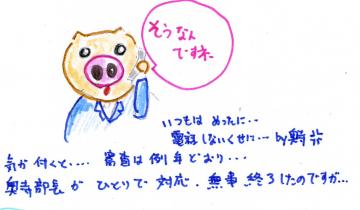 そうなん
ですネ
いつもは めったに・・
電話しないくせに・・・by奥寺
気が付くと・・・・ 審査は例年どおり・・・
奥寺部長が ひとりで対応、無事終了したのですが…